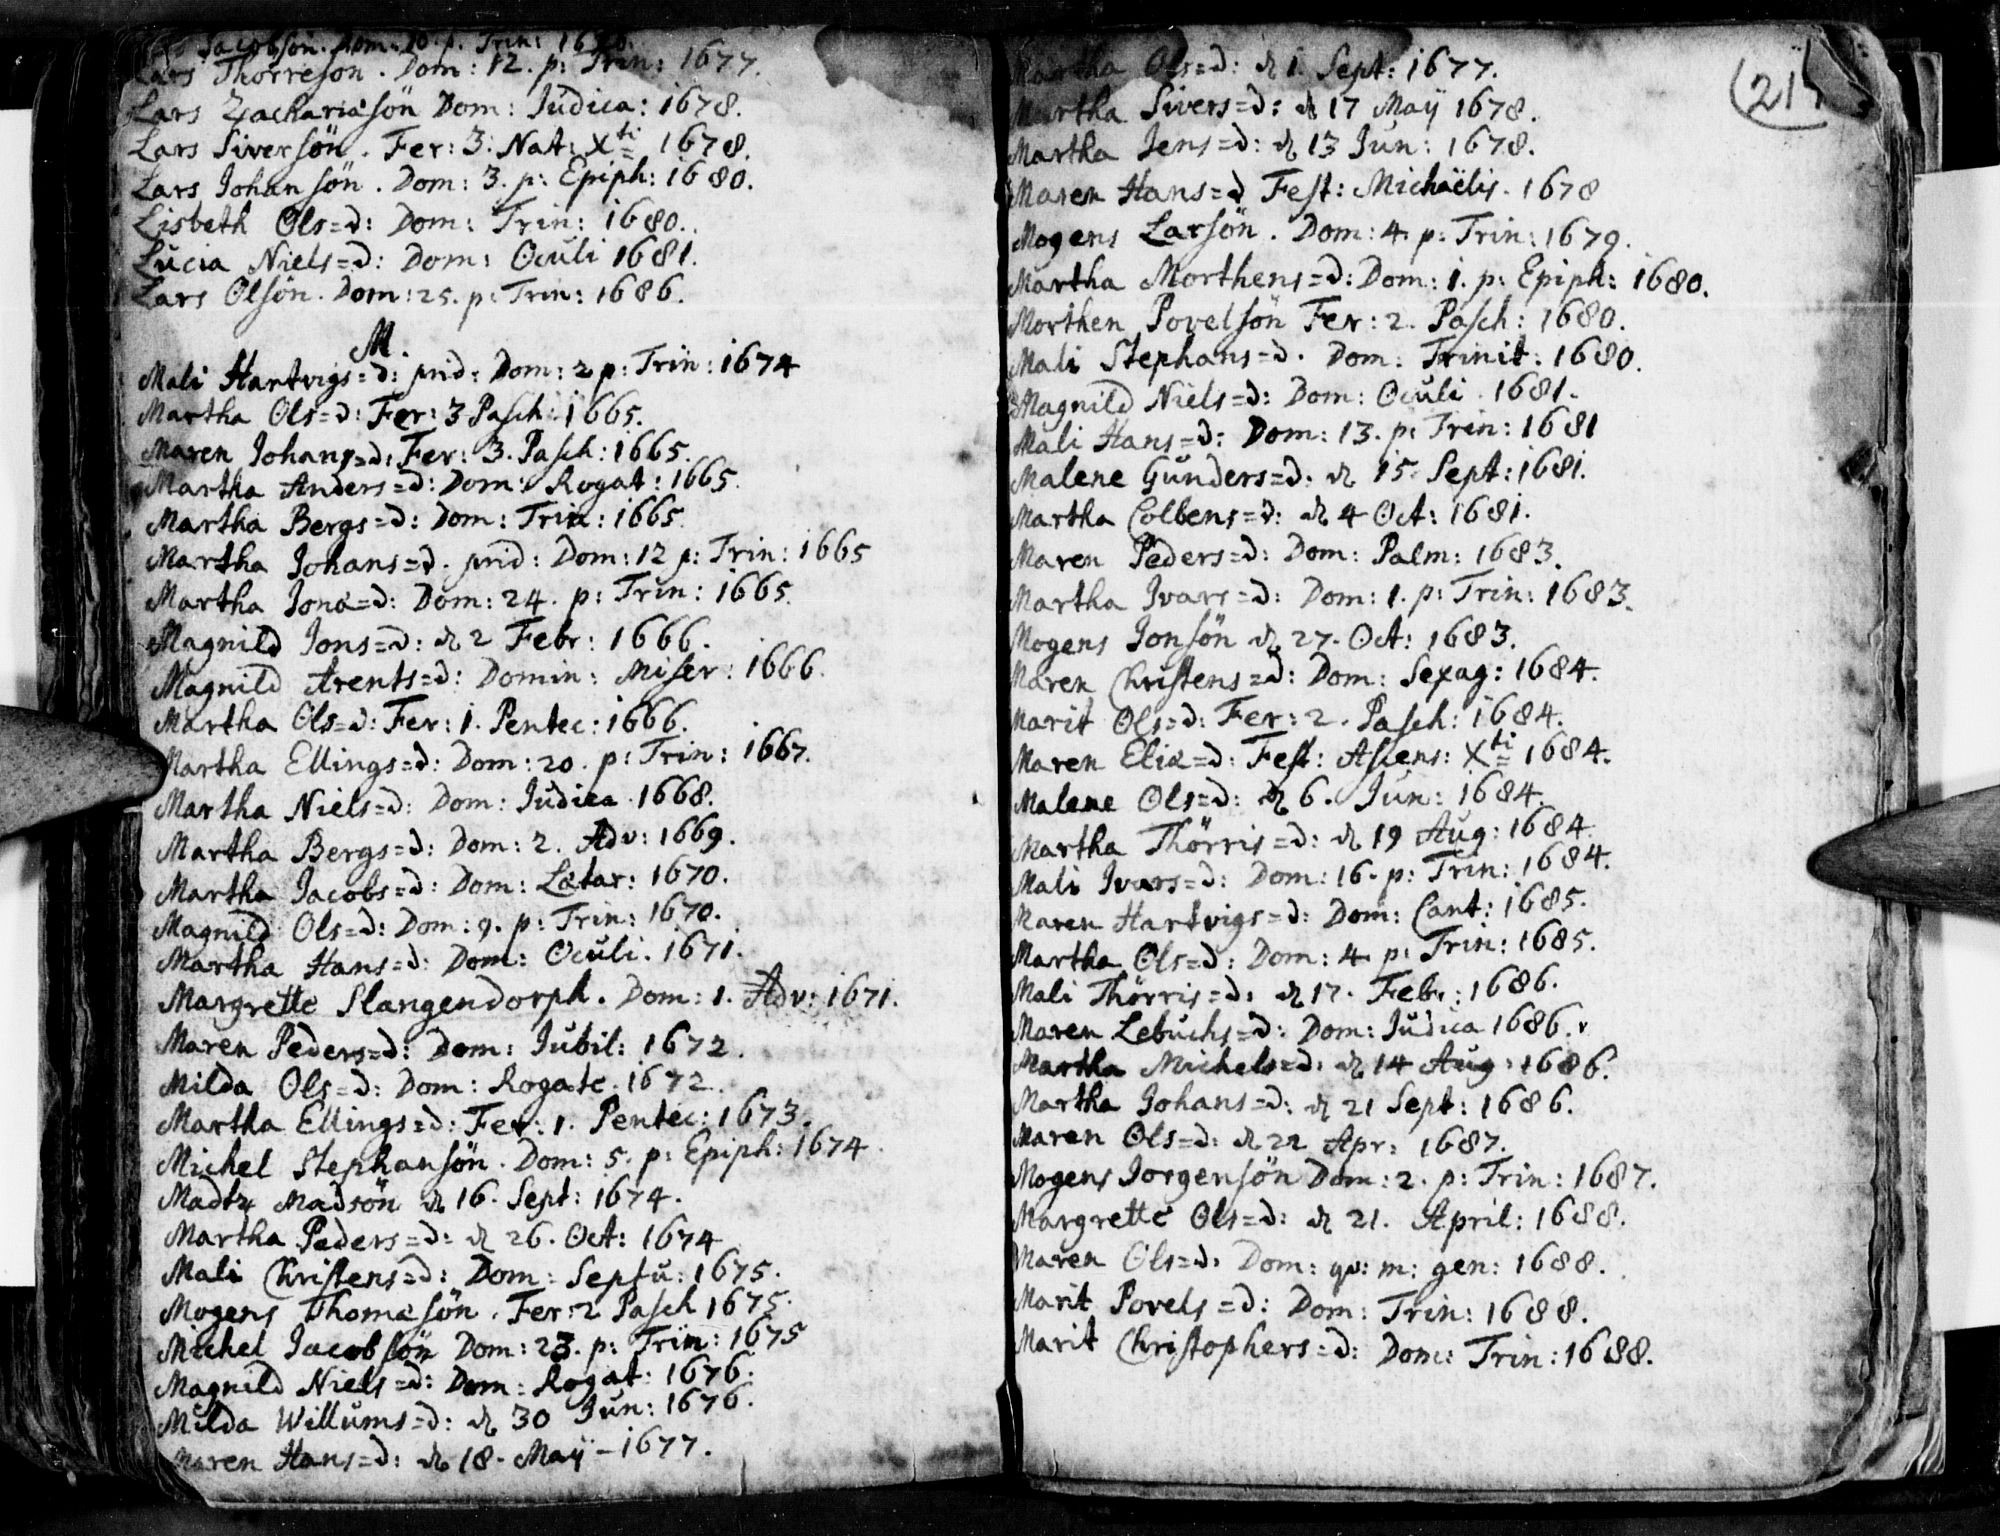 Jacobsön. Dom: 20. p. Trin:
Lars Thorresön. Dom: 12. p: Trin: 1677.
Lars Zachariæsön Dom: Iudica: 1678.
Lars Siversön. Fer: 3. Nat: Xti 1678.
Lars Johansön. Dom: 3. p: Epiph: 1680.
Lisbeth Ols=d: Dom: Trin: 1680.
Lucia Niels=d: Dom: Oculi 1681.
Lars Olsön. Dom: 25. p: Trin: 1686.
M.
Mali Hartvigs=d: prid: Dom: 2 p: Trin: 1674
Martha Ols=d: Fer: 3 Pasch: 1665.
Maren Johans=d: Fer: 3. Pasch: 1665.
Martha Anders=d: Dom: Rogat: 1665.
Martha Bergs=d: Dom: Trin: 1665.
Martha Johans=d. prid: Dom: 12 p: Trin: 1665
Martha Jonæ=d: Dom: 24. p: Trin: 1665.
Magnild Jons=d: d 2 Febr: 1666.
Magnild Arents=d: Domin: Miser: 1666.
Martha Ols=d: Fer: 1. Pentec: 1666.
Martha Ellings=d: Dom: 20. p: Trin: 1667.
Martha Niels=d: Dom: Iudica 1668.
Martha Bergs=d: Dom: 2. Adv: 1669.
Martha Jacobs=d: Dom: Lætar: 1670.
Magnild Ols=d: Dom: 9. p: Trin: 1670.
Martha Hans=d: Dom: Oculi. 1671.
Margrette Slangendorph. Dom: 1. Adv: 1671.
Maren Peders=d: Dom: Iubil: 1672.
Milda Ols=d: Dom: Rogate. 1672.
Martha Ellings=d: Fer: 1. Pentec: 1673.
Michel Stephansön. Dom: 5. p: Epiph: 1674.
Madtz Madsön d 16. Sept: 1674.
Martha Peders=d: d 26. Oct: 1674
Mali Christens=d: Dom: Septu: 1675.
Mogens Thomæsön. Fer: 2 Pasch 1675.
Michel Jacobsön Dom: 23. p: Trin: 1675
Magnild Niels=d: Dom: Rogat: 1676.
Milda Willums=d: d 30 Jun: 1676.
Maren Hans=d: d 18. Maÿ 1677.
(21
Martha Ols=d: d 1. Sept: 1677.
Martha Sivers=d: d 17 Maÿ 1678.
Martha Jens=d: d 13 Jun: 1678.
Maren Hans=d Fest: Michaëlis. 1678
Mogens Larsön. Dom: 4. p: Trin: 1679.
Martha Morthens=d: Dom: 1. p: Epiph: 1680.
Morthen Povelsön Fer: 2. Pasch: 1680.
Mali Stephans=d. Dom: Trinit: 1680.
Magnild Niels=d: Dom: Oculi. 1681.
Mali Hans=d: Dom: 13. p: Trin: 1681
Malene Gunders=d: d 15. Sept: 1681.
Martha Colbens=d: d 4 Oct: 1681.
Maren Peders=d: Dom: Palm: 1683.
Martha Ivars=d: Dom: 1. p: Trin: 1683.
Mogens Jonsön d 27. Oct: 1683.
Maren Christens=d: Dom: Sexag: 1684.
Marit Ols=d: Fer: 2. Pasch: 1684.
Maren Eliæ=d: Fest: Ascens: Xti 1684.
Malene Ols=d: d 6. Jun: 1684.
Martha Thörris=d: d 19 Aug: 1684.
Mali Ivars=d: Dom: 16. p: Trin: 1684.
Maren Hartvigs=d: Dom: Cant: 1685.
Martha Ols=d: Dom: 4. p: Trin: 1685.
Mali Thörris=d: d 17. Febr: 1686.
Maren Lebuchs=d: Dom: Iudica 1686.
Martha Michels=d: d 14 Aug: 1686.
Martha Johans=d: d 21 Sept: 1686.
Maren Ols=d: d 22 Apr: 1687.
Mogens Jorgensön Dom: 2. p: Trin: 1687.
Margrette Ols=d: d 21. April: 1688.
Maren Ols=d: Dom: qv: m: gen: 1688.
Marit Povels=d: Dom: Trin: 1688.
Marit Christophers=d: Dom: Trin: 1688.